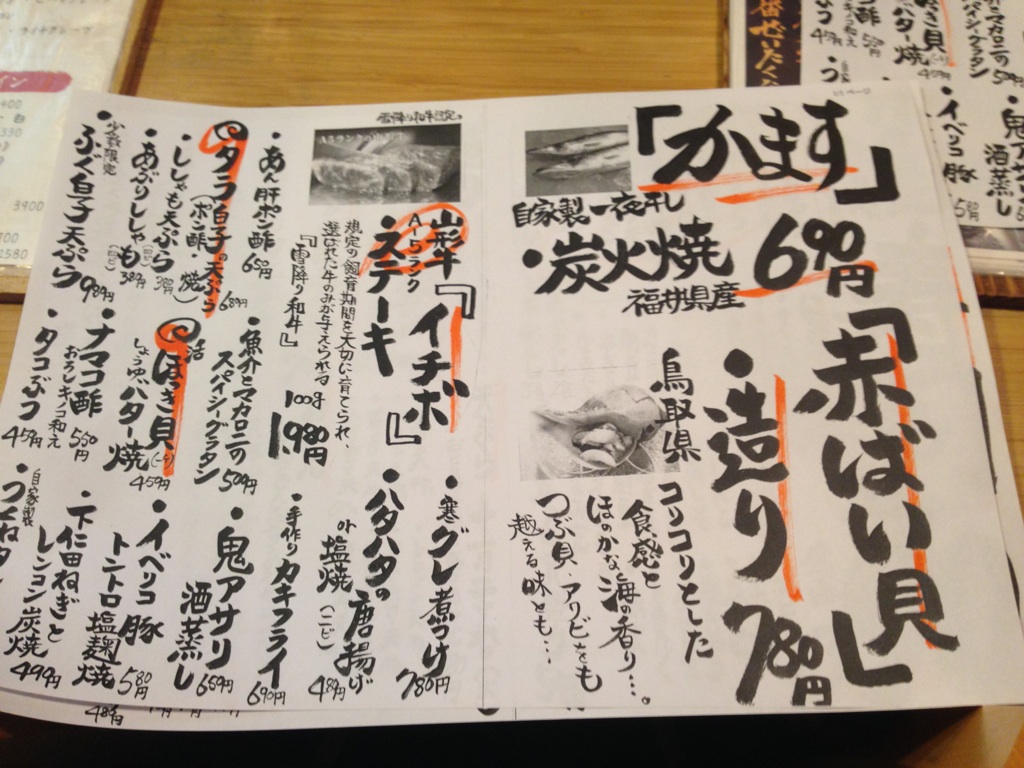 「かます」
自家製一夜干し
・炭火焼
690円
福井県産
「赤ばい貝」
・造り
780円
鳥取県
コリコリとした
食感と
ほのかな海の香り…。
つぶ貝・アワビをも
越える味とも…
雪降り和牛限定。
山形牛『イチボ』
A-5ランク
ステーキ
規定の飼育期間を大切に育てられ、
選ばれた牛のみが与えられる
『雪降り和牛』
100g
1,980円
・あん肝ポン酢 650円
・タラ白子の天ぷら
(ポン酢・焼) 689円
・ししゃも天ぷら
・あぶりししゃも
少数限定
・ふぐ白子天ぷら 989円
・魚介とマカロニの
スパイシーグラタン 509円
・活ほっき貝
しょうゆバター焼 459円
・ナマコ酢 550円
おろしキノコ和え
・タコぶつ 459円
・寒グレ煮つけ 780円
・ハタハタの唐揚げ
or 塩焼(二ビ) 489円
・手作りカキフライ 690円
・鬼アサリ
酒蒸し 659円
・イベリコ豚
トントロ塩麹焼 580円
・下仁田ねぎと
レンコン炭焼 499円
自家製
イベリコ豚
鬼アサリ
酒蒸し
マカロニの
スパイシーグラタン
509円
459円
3900